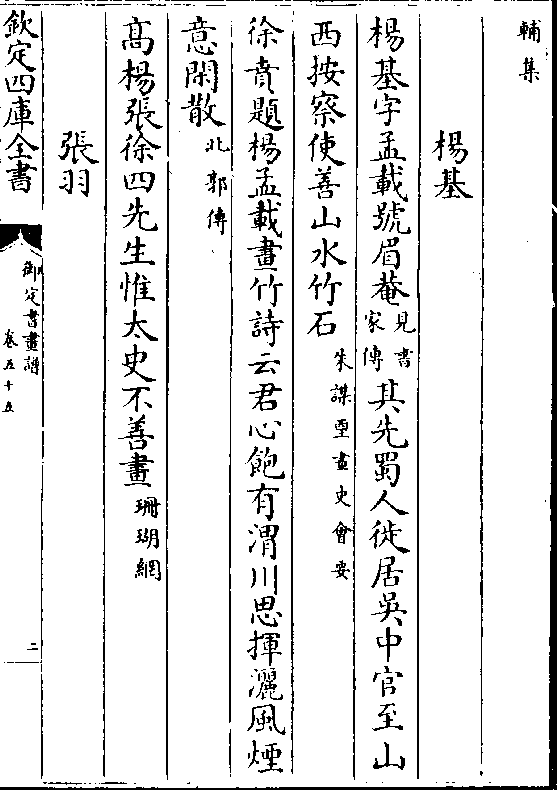 輔集
楊基
楊基字孟載號眉菴見書家傳其先蜀人徙居吳中官至山
西按察使善山水竹石朱謀垔畫史會要
徐賁題楊孟載畫竹詩云君心飽有渭川思揮灑風煙
意閑散北郭傳
高楊張徐四先生惟太史不善畫珊瑚網
張羽
欽定四庫全書
御定書畫譜
卷五十五
二